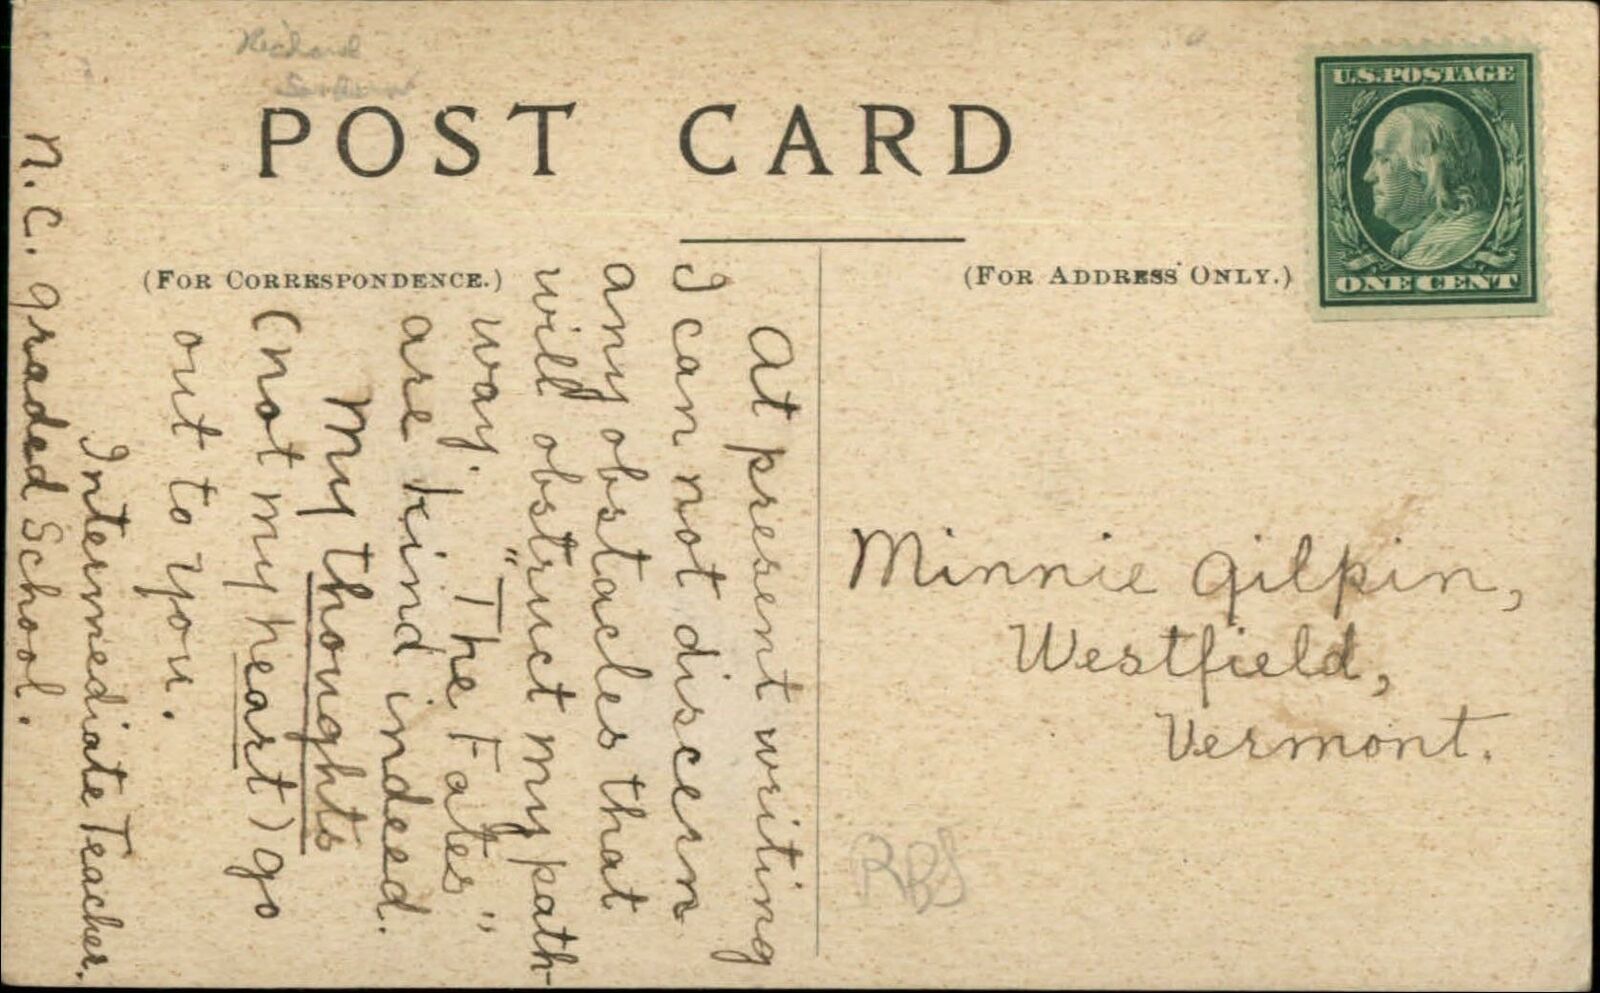 Richard
POST CARD
U.S. POSTAGE
ONE CENT
(FOR CORRESPONDENCE.)
(FOR ADDRESS ONLY.)
At present writing
I can not discern
any obstacles that
will obstruct my path-
way. "The Fates"
are kind indeed.
My thoughts
(not my heart) go
out to you.
Intermediate Teacher.
N.C. graded School.
Minnie Gilpin,
Westfield,
Vermont.